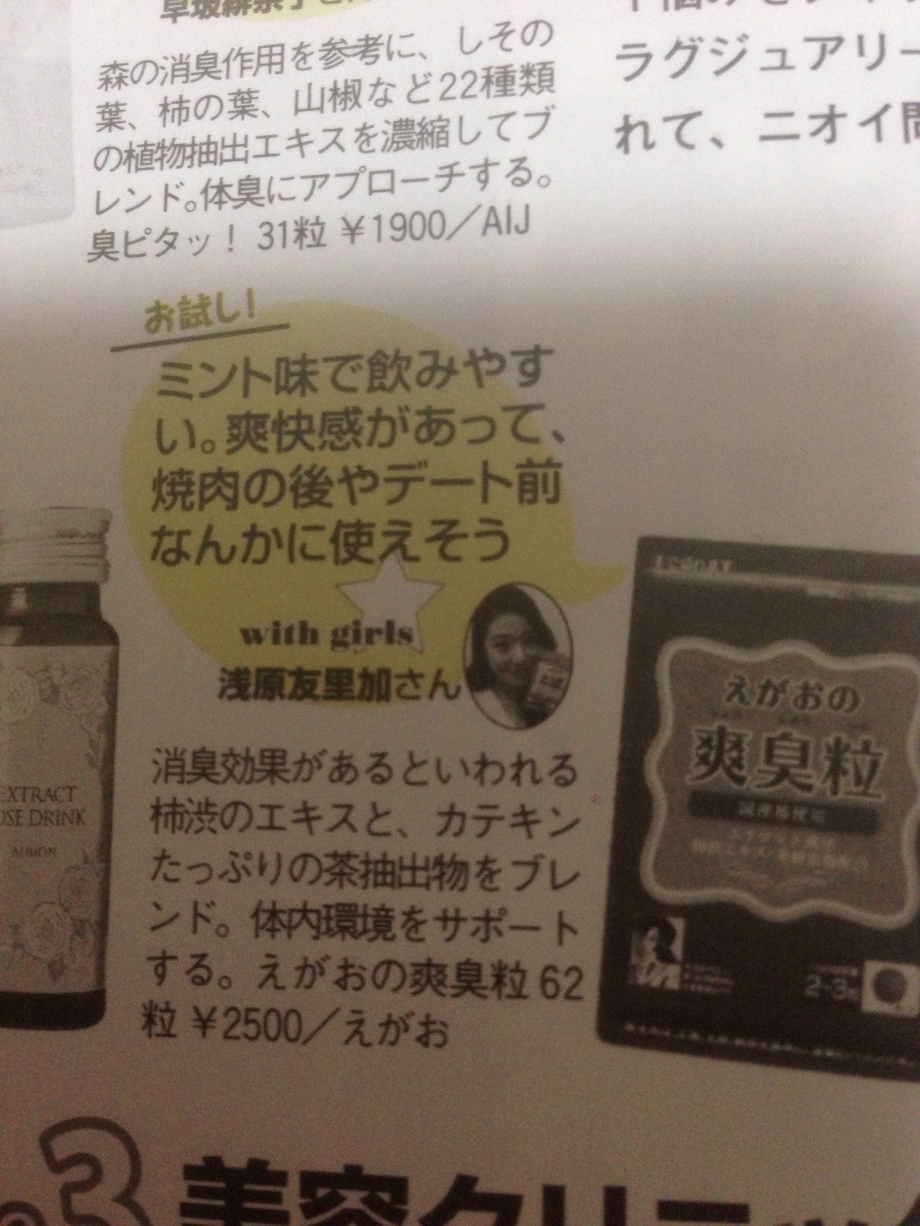 森の消臭作用を参考に、しその
葉、柿の葉、山椒など22種類
の植物抽出エキスを濃縮してブ
レンド。体臭にアプローチする。
臭ピタッ！ 31粒 ￥1900／AIJ
ラグジュアリー
れて、ニオイ
お試し！
ミント味で飲みやす
い。爽快感があって、
焼肉の後やデート前
なんかに使えそう
with girls
浅原友里加さん
消臭効果があるといわれる
柿渋のエキスと、カテキン
たっぷりの茶抽出物をブレ
ンド。体内環境をサポート
する。えがおの爽臭粒 62
粒 ￥2500／えがお
EXTRACT
ROSE DRINK
ALBION
えがおの
爽臭粒
2~3
3
美容クリニック